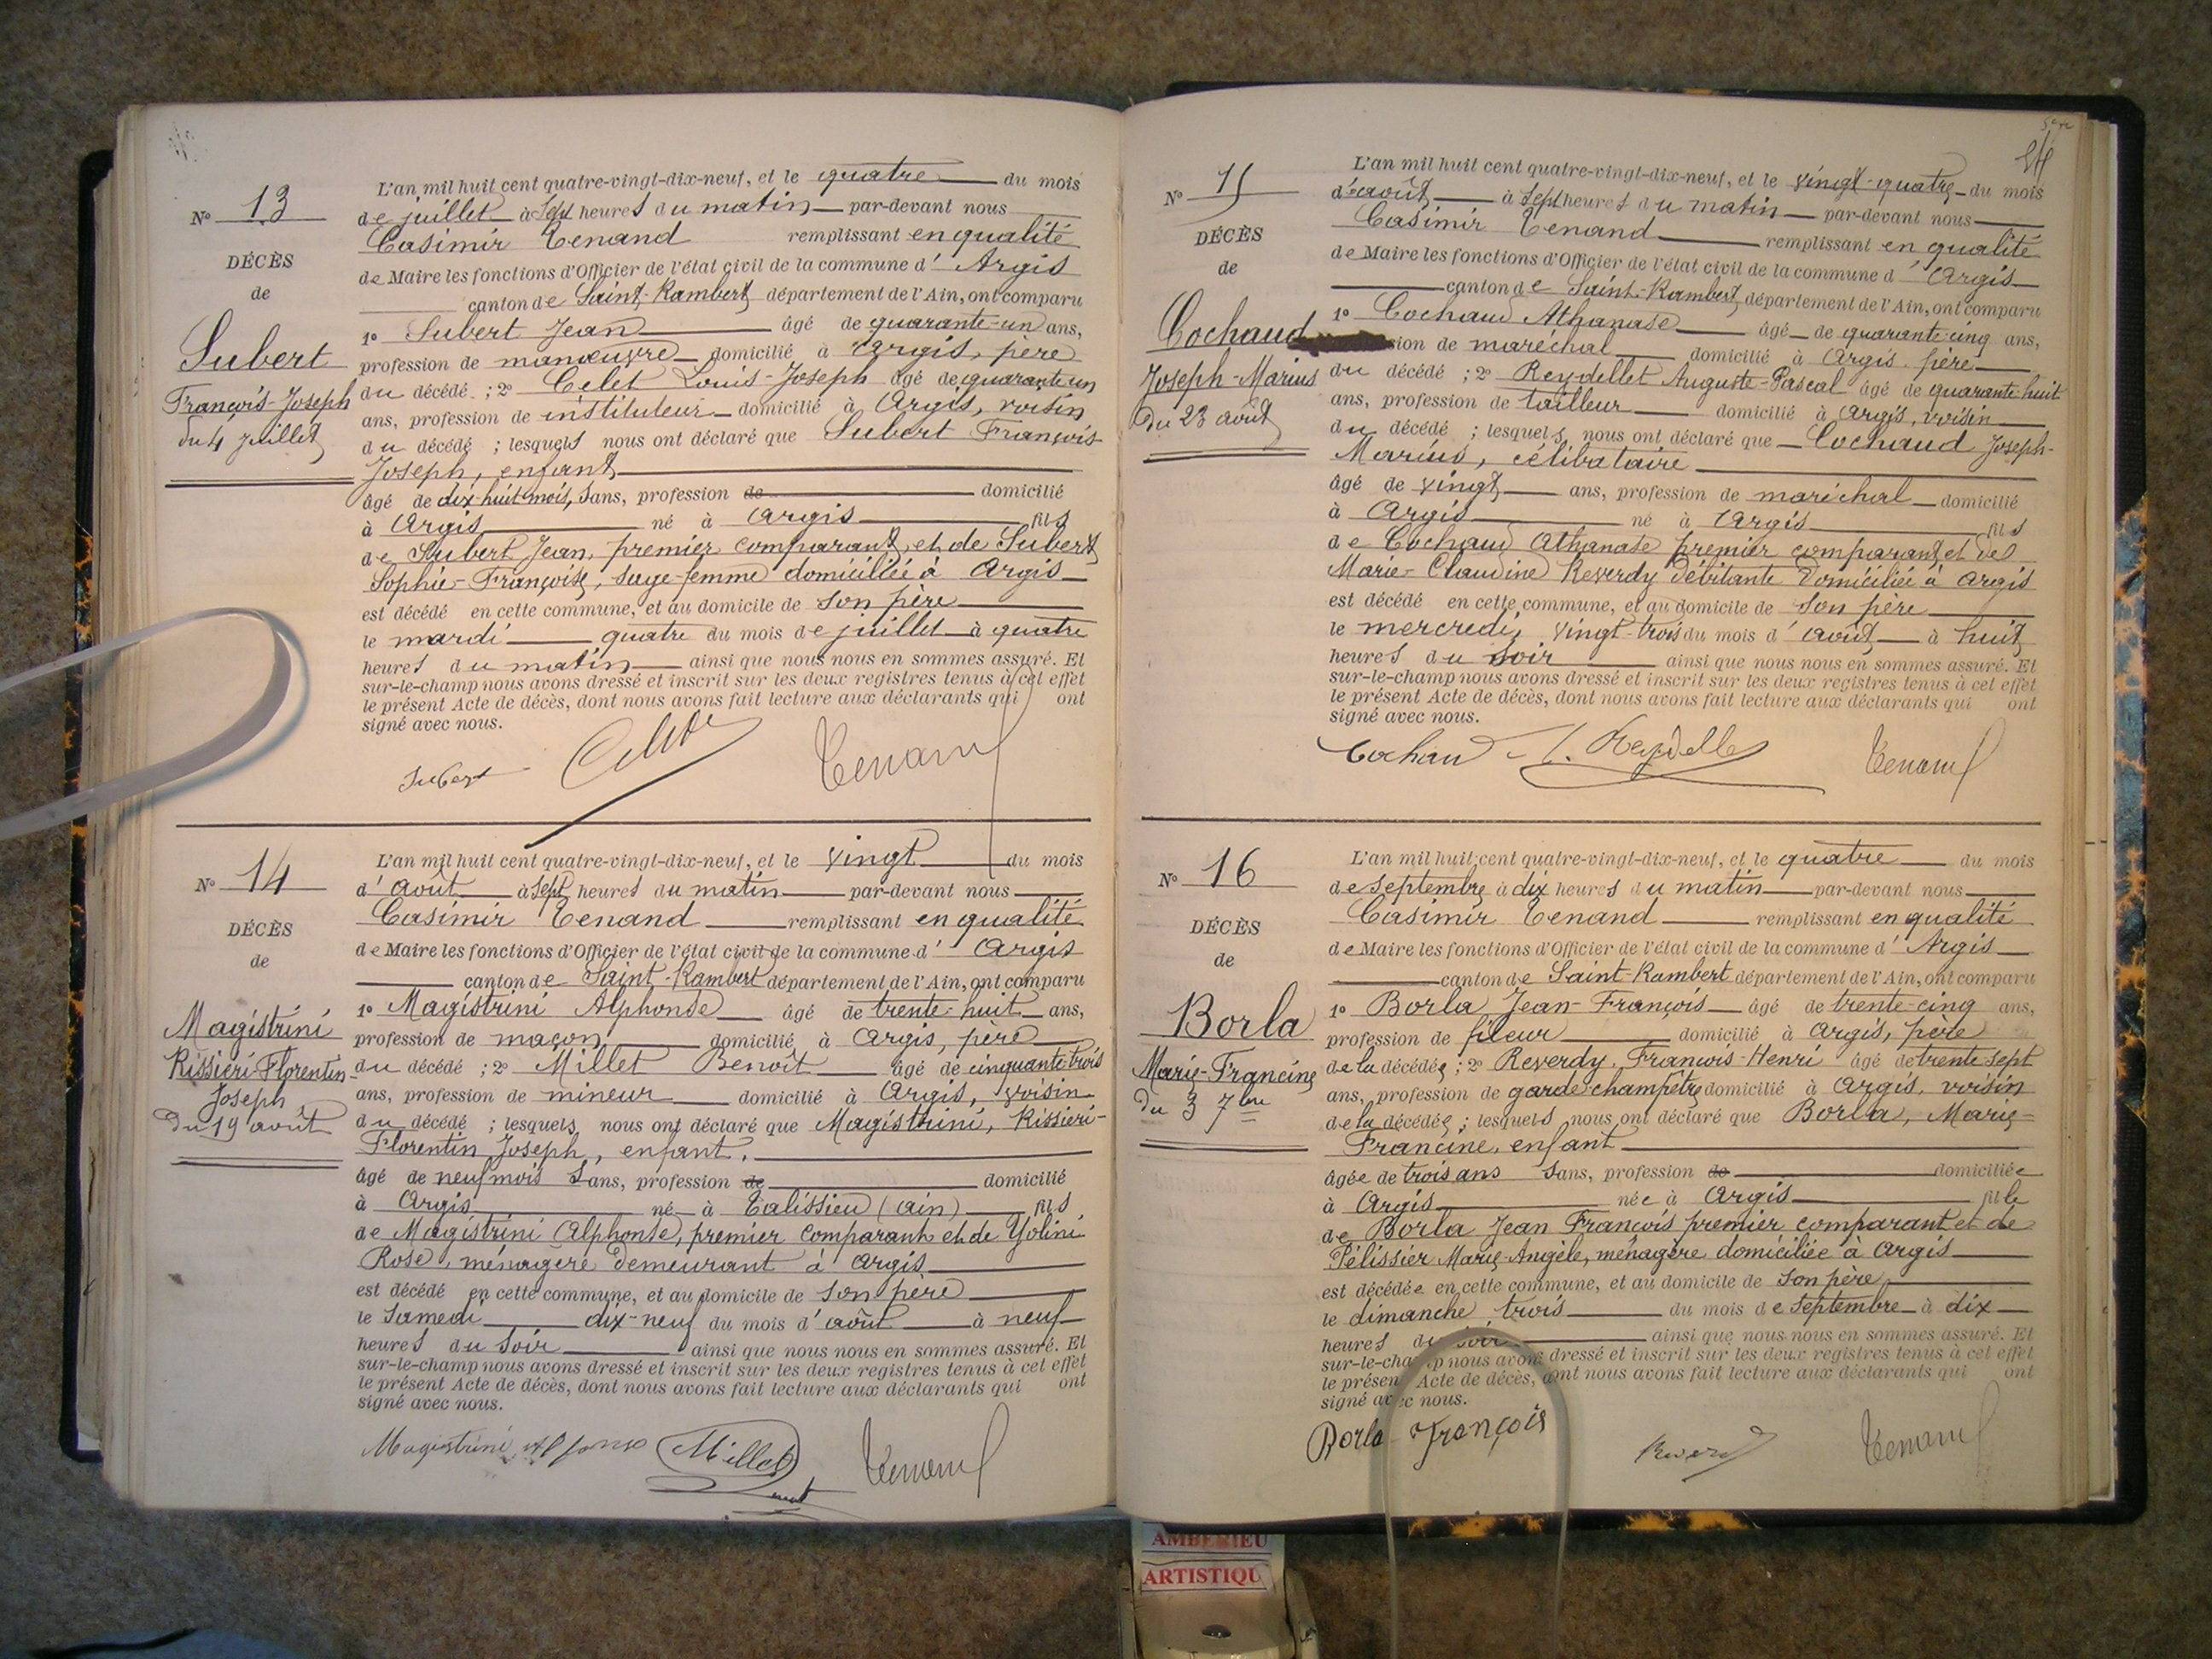 N° 13
DÉCÈS
de
Subert
François-Joseph
du 4 juillet
L'an mil huit cent quatre-vingt-dix-neuf, et le quatre du mois
de juillet à sept heures du matin par-devant nous
Casimir Tenand remplissant en qualité
de Maire les fonctions d'Officier de l'état civil de la commune d' Argis
canton de Saint-Rambert département de l'Ain, ont comparu
1° Subert Jean âgé de quarante-un ans,
profession de manœuvre domicilié à Argis, père
du décédé ; 2° Celet Louis-Joseph âgé de quarante un
ans, profession de instituteur domicilié à Argis, voisin
du décédé ; lesquels nous ont déclaré que Subert François-
Joseph, enfant
âgé de dix-huit mois, sans, profession de domicilié
à Argis né à Argis fils
de Subert Jean, premier comparant, et de Subert
Sophie-Françoise, sage-femme domiciliée à Argis
est décédé en cette commune, et au domicile de son père
le mardi quatre du mois de juillet à quatre
heures du matin ainsi que nous nous en sommes assuré. Et
sur-le-champ nous avons dressé et inscrit sur les deux registres tenus à cet effet
le présent Acte de décès, dont nous avons fait lecture aux déclarants qui ont
signé avec nous.
Subert Tenand
N° 14
DÉCÈS
de
Magistrini
Rissieri-Florentin-
Joseph
du 19 août
L'an mil huit cent quatre-vingt-dix-neuf, et le vingt du mois
d' août à sept heures du matin par-devant nous
Casimir Tenand remplissant en qualité
de Maire les fonctions d'Officier de l'état civil de la commune d' Argis
canton de Saint-Rambert département de l'Ain, ont comparu
1° Magistrini Alphonse âgé de trente-huit ans,
profession de maçon domicilié à Argis, père
du décédé ; 2° Millet Benoît âgé de cinquante trois
ans, profession de mineur domicilié à Argis, voisin
du décédé ; lesquels nous ont déclaré que Magistrini, Rissieri-
Florentin Joseph, enfant.
âgé de neuf mois sans, profession de domicilié
à Argis né à Talissieu (ain) fils
de Magistrini Alphonse, premier comparant et de Yolini
Rose, ménagère demeurant à Argis
est décédé en cette commune, et au domicile de son père
le samedi dix-neuf du mois d' août à neuf
heures du soir ainsi que nous nous en sommes assuré. Et
sur-le-champ nous avons dressé et inscrit sur les deux registres tenus à cet effet
le présent Acte de décès, dont nous avons fait lecture aux déclarants qui ont
signé avec nous.
Magistrini Alfonso Millet Tenand
N° 15
DÉCÈS
de
Cochaud
Joseph-Marius
du 23 août
L'an mil huit cent quatre-vingt-dix-neuf, et le vingt-quatre du mois
d'août à sept heures du matin par-devant nous
Casimir Tenand remplissant en qualité
de Maire les fonctions d'Officier de l'état civil de la commune d' Argis
canton de Saint-Rambert département de l'Ain, ont comparu
1° Cochaud Athanase âgé de quarante-cinq ans,
sion de maréchal domicilié à Argis père
du décédé ; 2° Reydellet Auguste-Pascal âgé de quarante-huit
ans, profession de tailleur domicilié à Argis, voisin
du décédé ; lesquels nous ont déclaré que Cochaud Joseph-
Marius, célibataire
âgé de vingt ans, profession de maréchal domicilié
à Argis né à Argis fils
de Cochaud Athanase premier comparant et de
Marie-Claudine Reverdy débitante domiciliée à Argis
est décédé en cette commune, et au domicile de son père
le mercredi, vingt-trois du mois d' août à huit
heures du soir ainsi que nous nous en sommes assuré. Et
sur-le-champ nous avons dressé et inscrit sur les deux registres tenus à cet effet
le présent Acte de décès, dont nous avons fait lecture aux déclarants qui ont
signé avec nous.
Cochaud Reydellet Tenand
N° 16
DÉCÈS
de
Borla
Marie-Francine
du 3 7bre
L'an mil huit cent quatre-vingt-dix-neuf, et le quatre du mois
de septembre à dix heures du matin par-devant nous
Casimir Tenand remplissant en qualité
de Maire les fonctions d'Officier de l'état civil de la commune d' Argis
canton de Saint-Rambert département de l'Ain, ont comparu
1° Borla Jean-François âgé de trente-cinq ans,
profession de fileur domicilié à Argis, père
de la décédée ; 2° Reverdy, François-Henri âgé de trente-sept
ans, profession de garde-champêtre domicilié à Argis, voisin
de la décédée ; lesquels nous ont déclaré que Borla, Marie-
Francine, enfant
âgée de trois ans sans, profession de domiciliée
à Argis née à Argis fille
de Borla Jean François premier comparant et de
Pélissier Marie-Angèle, ménagère domiciliée à Argis
est décédée en cette commune, et au domicile de son père
le dimanche, trois du mois de septembre à dix
heures du soir ainsi que nous nous en sommes assuré. Et
sur-le-champ nous avons dressé et inscrit sur les deux registres tenus à cet effet
le présent Acte de décès, dont nous avons fait lecture aux déclarants qui ont
signé avec nous.
Borla François Reverdy Tenand
AMBERIEU
ARTISTIQU